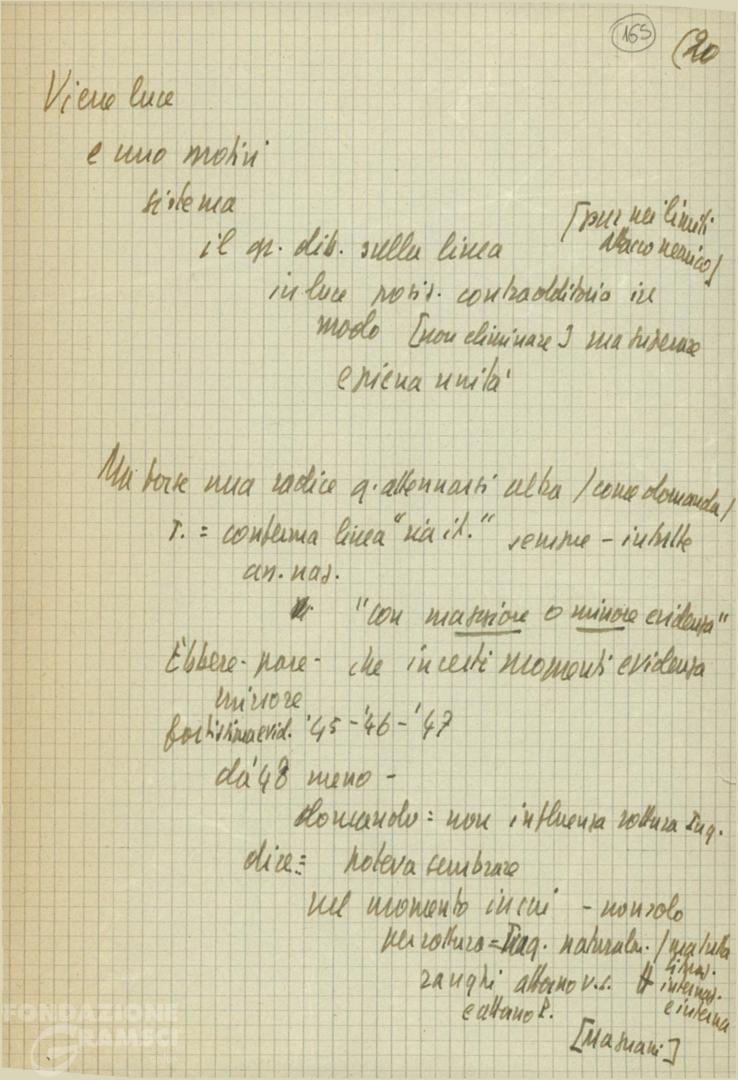 165 (20
Viene luce
e uno motivi
sistema
il gr. dib. sulla linea [pur nei limiti
attacco nemico]
in luce posiz. contradditoria in
modo [non eliminare] ma superare
e piena unità
Ma forse una radice q. attenuarsi altra / come domanda /
T. = conferma linea "via it." sempre - in tutte
an. naz.
"con maggiore o minore evidenza"
Ebbene - pare - che in certi momenti evidenza
minore
fortissima evid. '45 - '46 - '47
dà 48 meno -
domando = non influenza rottura Jug.
dice = poteva sembrare
nel momento in cui - non solo
per rottura = Jug. naturalm. / ma tutta
situaz.
ranghi attorno U.S. internaz.
e attorno P. e interna
[Magnani]
FONDAZIONE
GRAMSCI